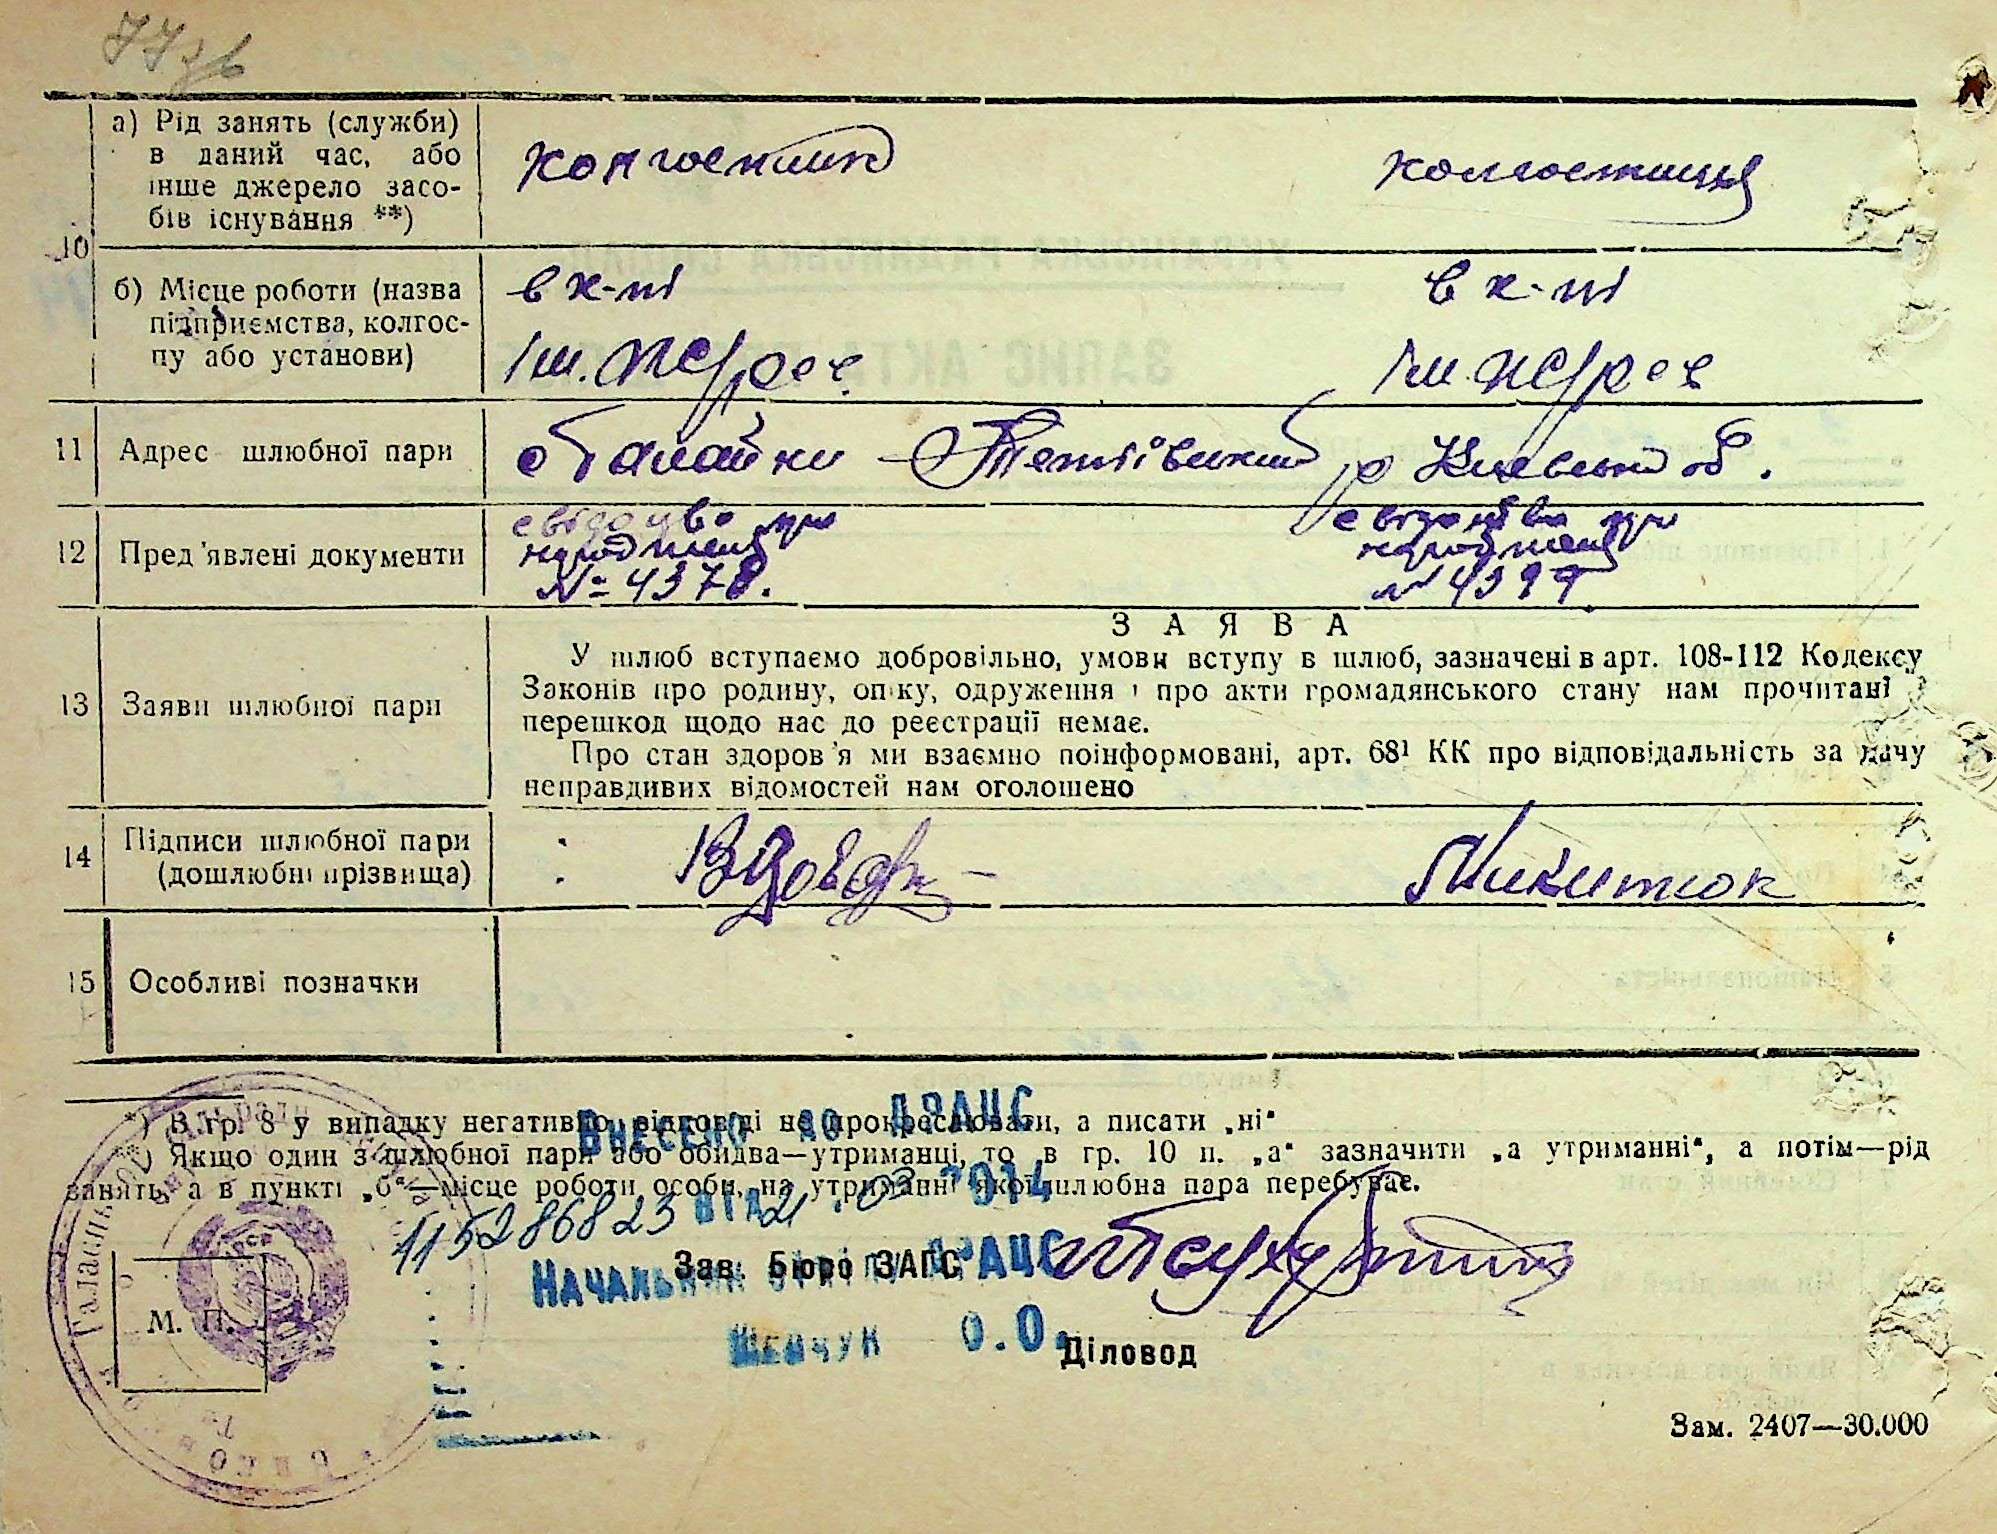 77 зв
10
а) Рід занять (служби)
в даний час, або
інше джерело засо-
бів існування **)
колгоспник
колгоспниця
б) Місце роботи (назва
підприємства, колгос-
пу або установи)
в к-пі
в к-пі
11
Адрес шлюбної пари
с Галайки Тетіївський р Київської об.
12
Пред'явлені документи
свідоцтво про
народження
№ 4378.
свідоцтво про
народження
№
13
Заяви шлюбної пари
ЗАЯВА
У шлюб вступаємо добровільно, умови вступу в шлюб, зазначені в арт. 108-112 Кодексу
Законів про родину, опіку, одруження і про акти громадянського стану нам прочитані
перешкод щодо нас до реєстрації немає.
Про стан здоров'я ми взаємно поінформовані, арт. 68¹ КК про відповідальність за дачу
неправдивих відомостей нам оголошено
14
Підписи шлюбної пари
(дошлюбні прізвища)
Микитюк
15
Особливі позначки
*) В гр. 8 у випадку негативно відповіді не прокреслювати, а писати „ні"
**) Якщо один з шлюбної пари або обидва—утриманці, то в гр. 10 п. „а" зазначити „а утриманні", а потім—рід
занять, а в пункті „б"—місце роботи особи, на утриманні якої шлюбна пара перебуває.
Внесено до ДРАЦС
від 21. 03 2014
115286823
Зав. Бюро ЗАГС
Начальник відділу ДРАЦС
Шевчук О.О.
М. П.
Діловод
Зам. 2407—30.000